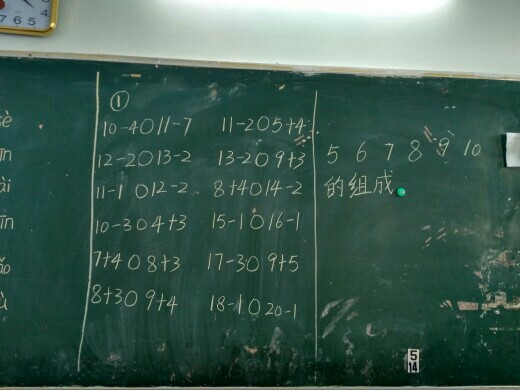 ①
10-4○11-7 11-2○5+4
12-2○13-2 13-2○9+3
11-1○12-2 8+4○14-2
10-3○4+3 15-1○16-1
7+4○8+3 17-3○9+5
8+3○9+4 18-1○20-1
5 6 7 8 9 10
的组成
5
14